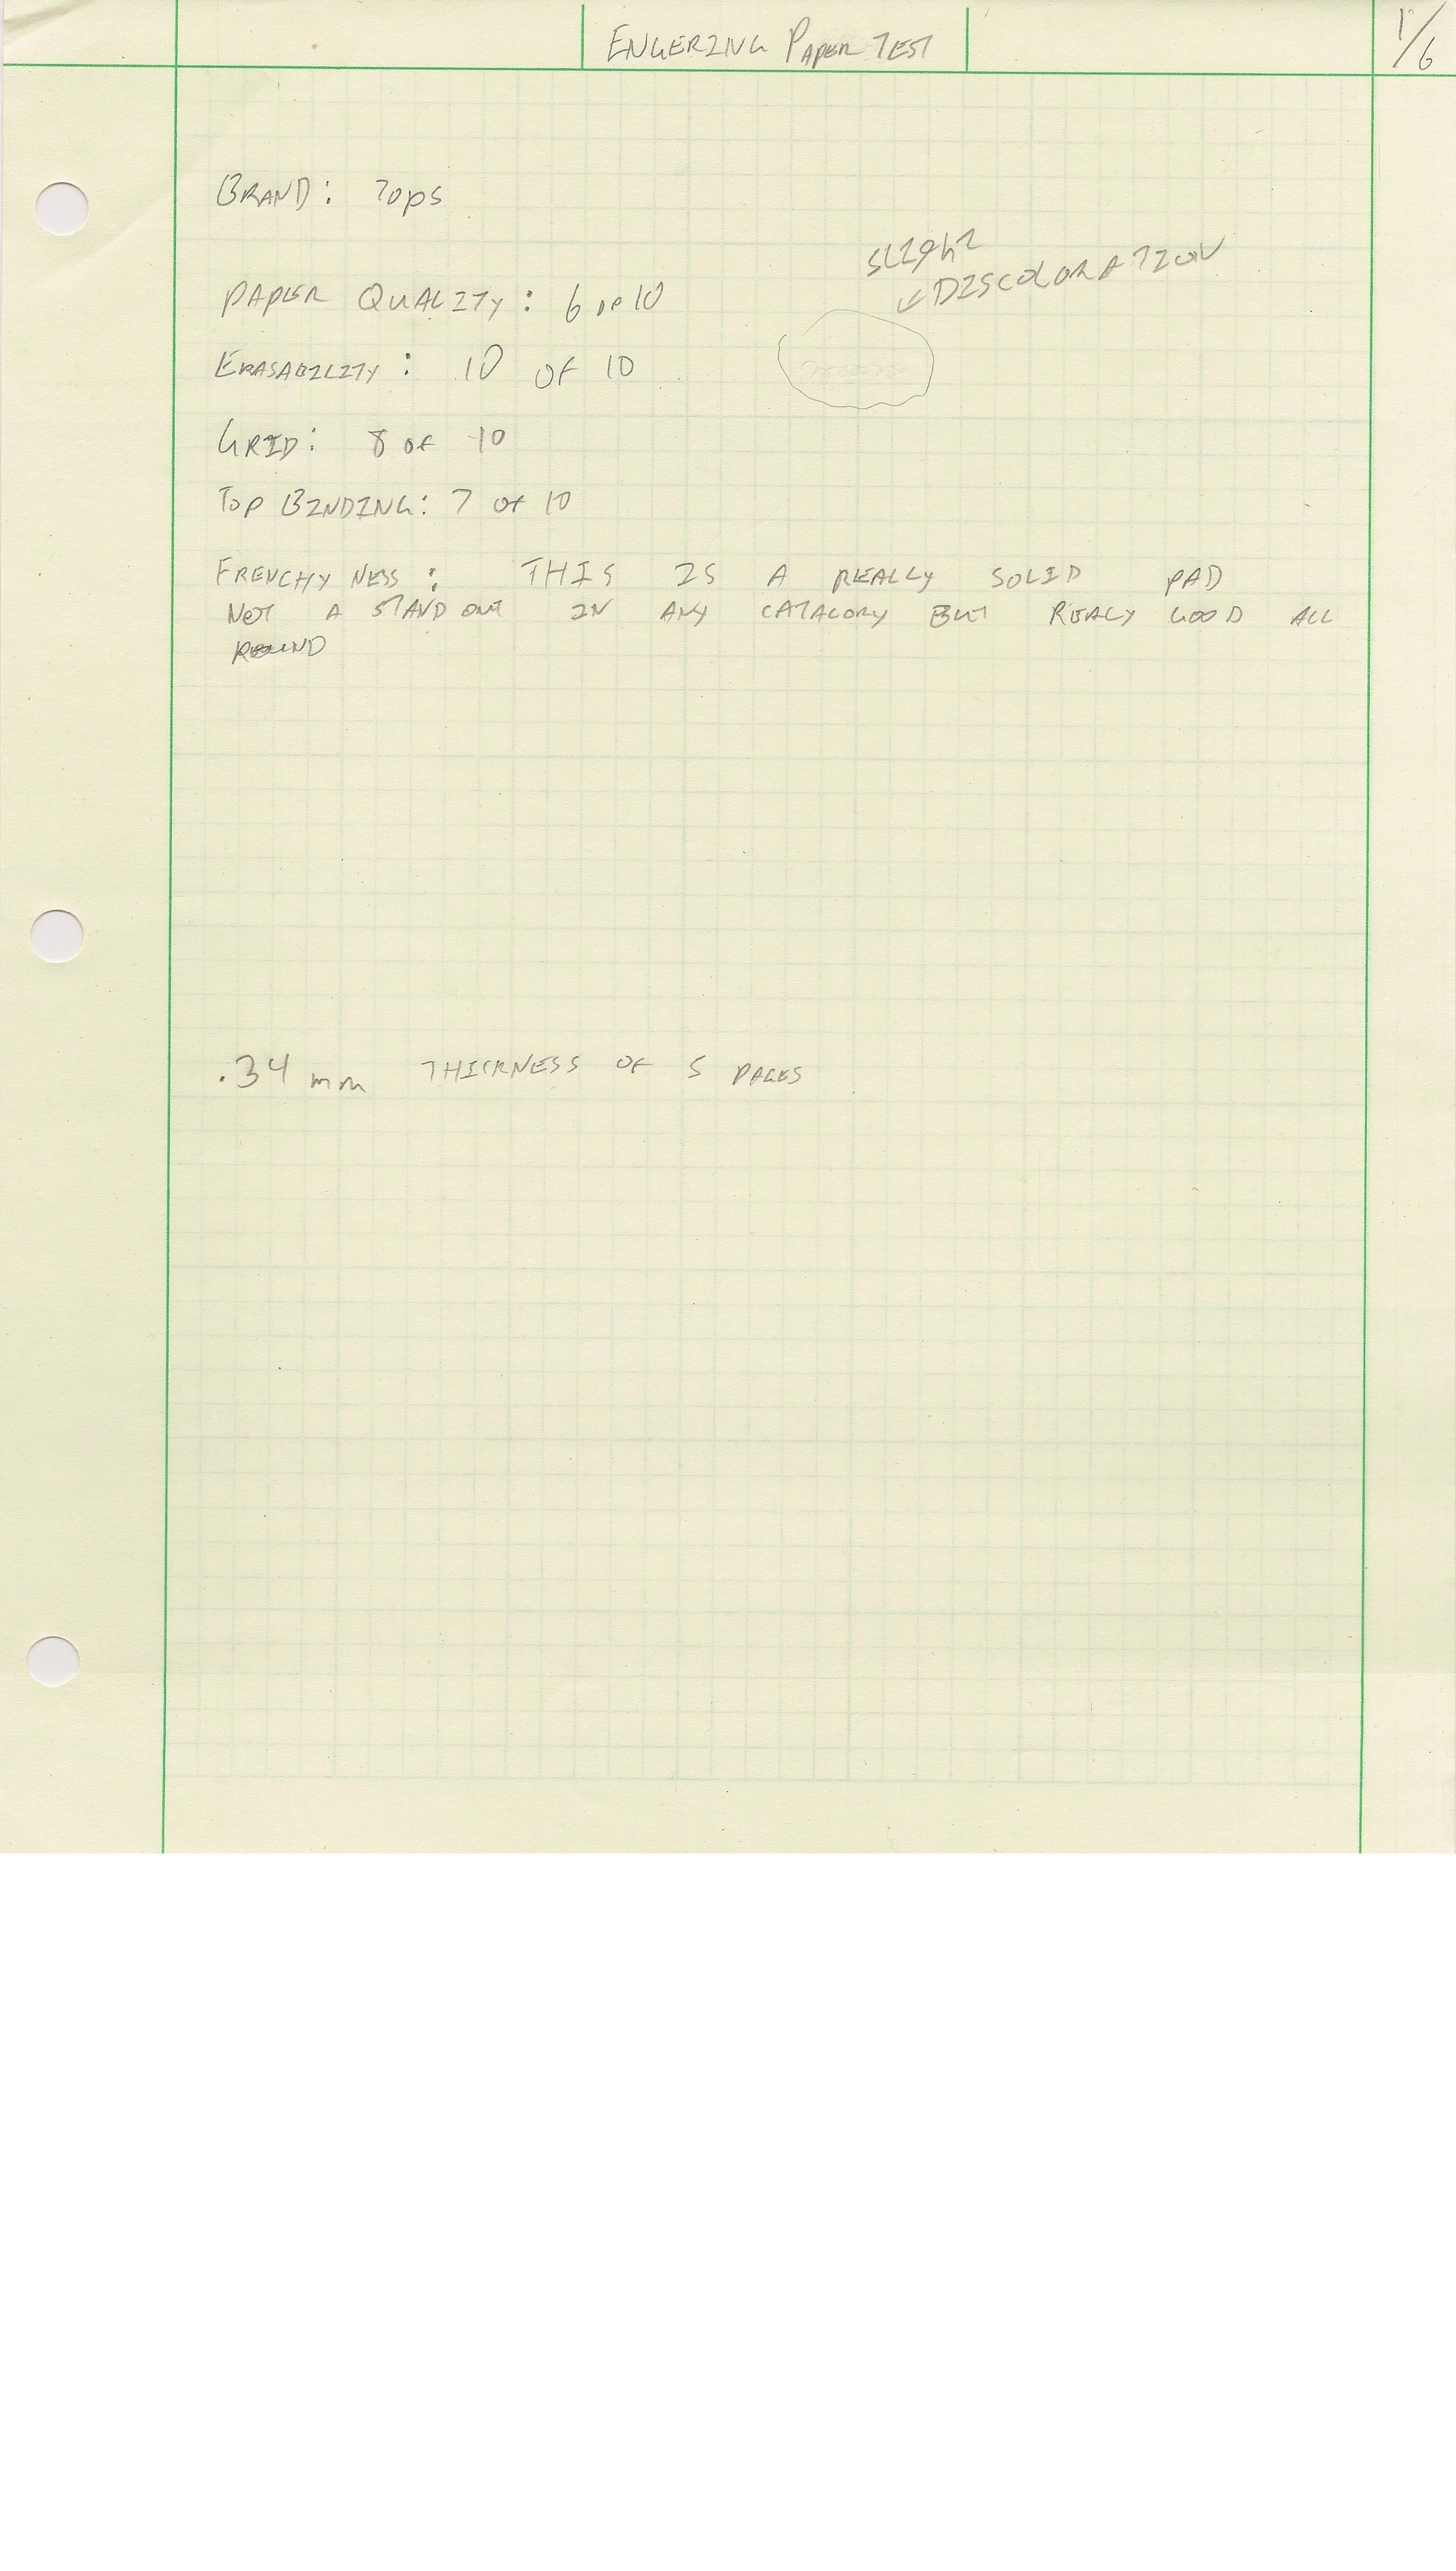 ENGERING PAPER TEST
1/6
BRAND: TOPS
SLIGHT
DISCOLORATION
PAPER QUALITY: 6 OF 10
ERASABILITY: 10 OF 10
GRID: 8 OF 10
TOP BINDING: 7 OF 10
FRENCHY NESS: THIS IS A REALLY SOLID PAD
NOT A STAND OUT IN ANY CATAGORY BUT REALY GOOD ALL
ROUND
.34 mm THICKNESS OF 5 PAGES